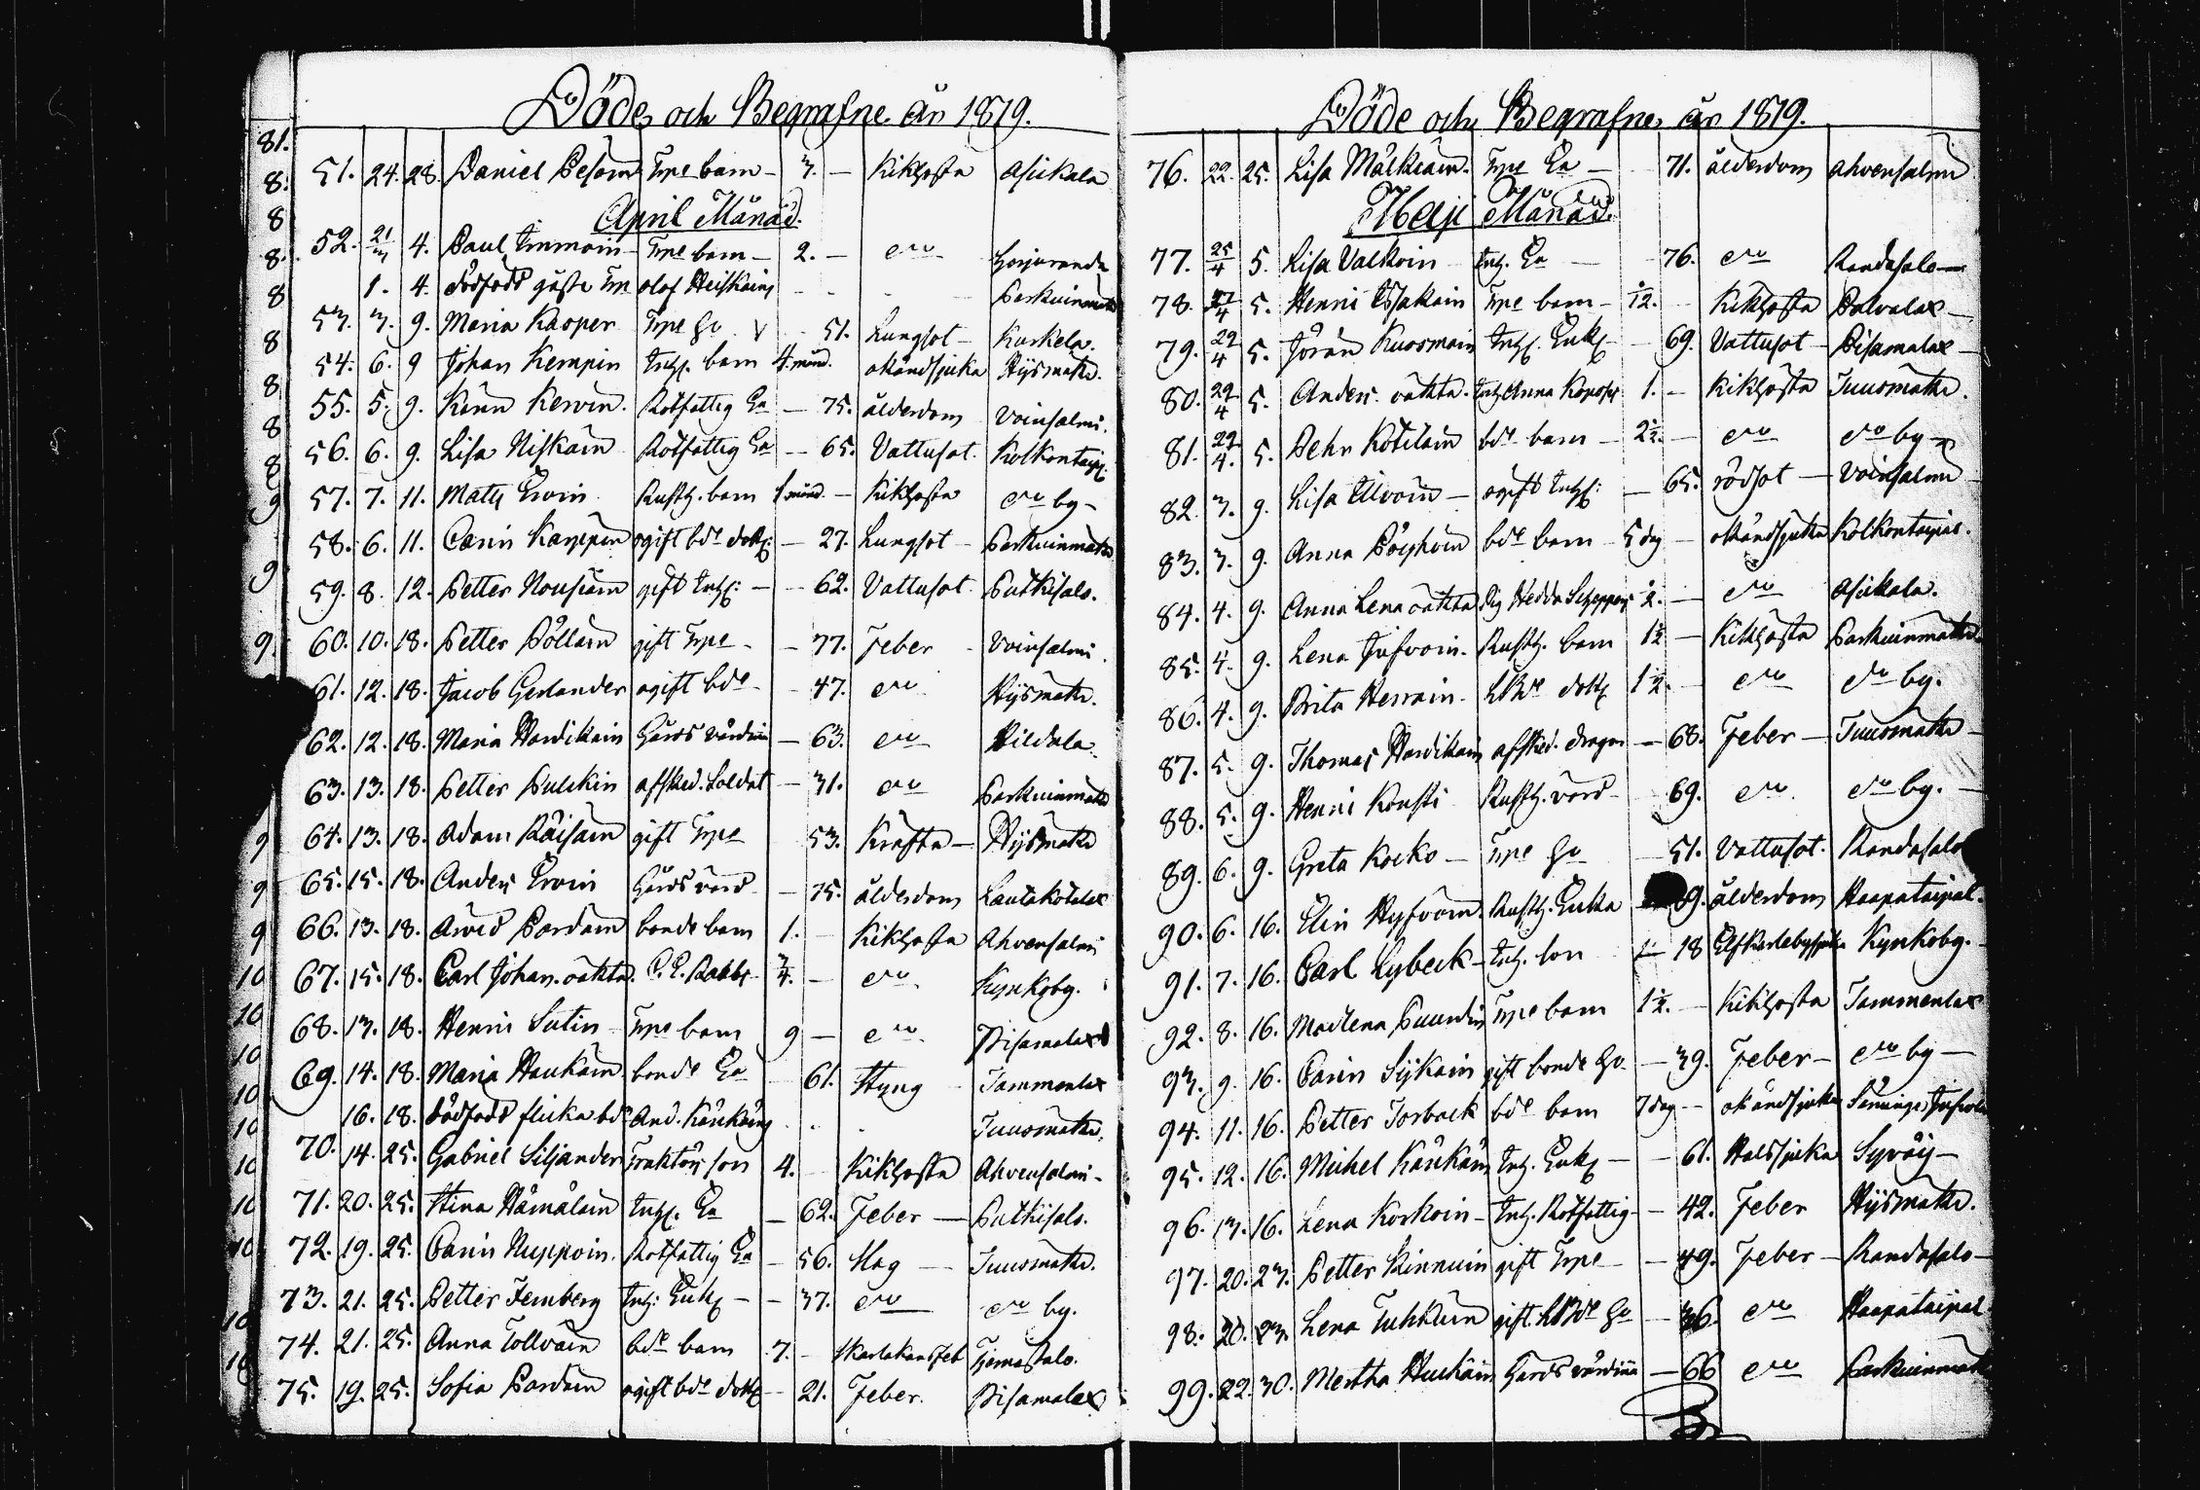 Döde och Begrafne år 1819.
51. 24. 28. Daniel Pesoin Trpe barn - 3. - Kikhosta Asikala
April Månad.
52. 21/3 4. Paul Immoin - Trpe barn - 2. - dito
1. 4. dödfödt gosse Trp Olof Heiskains Parkuinmäki
53. 3. 9. Maria Kasper Trpe Hu - 51. Lungsot - Kaskela.
54. 6. 9 Johan Kempin Inhs. barn 4 mån. okänd sjuka Hijsmäki.
55. 5. 9. Karin Kervin. Rotfattig Ea - 75. ålderdom Voinsalmi.
56. 6. 9. Lisa Niskain Rotfattig Ea - 65. Vattusot. Kolkontaip.
57. 7. 11. Matts Ervin Rusth. barn 1 mån. - Kikhosta do by -
58. 6. 11. Carin Karppin ogift bde dott. - 27. Lungsot - Parkuinmäki
59. 8. 12. Petter Nousiain gift Inhs: - 62. Vattusot Putkisalo.
60. 10. 18. Petter Pölläin gift Trpe - 77. Feber - Voinsalmi.
61. 12. 18. Jacob Gerlander ogift bde - 47. do Hijsmäki.
62. 12. 18. Maria Hardikain Gårds värdina - 63. do
63. 13. 18. Petter Pulckin afsked. Soldat - 31. do Parkuinmäki
64. 13. 18. Adam Räisäin gift Trpe 53. Kräfta - Hijsmäki
65. 15. 18. Anders Ervin Gårds värd - 75. ålderdom Lautakotalax
66. 13. 18. Arvid Pardain bonde barn 1. - Kikhosta Ahvensalmi
67. 15. 18. Carl Johan. oäkta. C. E. Rabbs 3/4. - do. Kynkoby.
68. 13. 18. Henric Sutin Trpe barn 9 - do. Pisamalax
69. 14. 18. Maria Haukain bonde Ea 61. Styng Tammenlax
16. 18. dödfödt flicka bde And. Känkäins Juusmäki.
70. 14. 25. Gabriel Siljander Traktörs son 4. Kikhosta Ahvensalmi -
71. 20. 25. Stina Hämäläin Inhs. Ea - 62. Feber - Putkisalo.
72. 19. 25. Carin Nuppoin. Rotfattig Ea - 56. Slag - Juusmäki.
73. 21. 25. Petter Fernberg Inhs: Enkl - - 37. do do by.
74. 21. 25. Anna Tollvain bde barn 7. - Skarlakansfeb Tjemassalo.
75. 19. 25. Sofia Pardain ogift bde dott - 21. Feber. Pisamalax
Döde och Begrafne år 1819.
76. 22. 25. Lisa Malkiain. Trpe Ea - 71. ålderdom Ahvensalmi
Maji Månad.
77. 25/4 5. Lisa Valkoin Inhs. Ea - 76. do Randasalo -
78. 27/4 5. Henric Trpe barn - Kikhosta Palvalax -
79. 29/4 5. Jöran Kuosmain Inhs. Enkl - 69. Vattusot - Pisamalax -
80. 29/4 5. Anders. oäkta. Inhs Anna 1. - Kikhosta Juusmäki.
81. 29/4. 5. Pehr Kotilain bde barn - 2½. - do do by -
82. 3. 9. Lisa Ulvoin - ogift Inhs: - 65. rödsot - Voinsalmi
83. 3. 9. Anna Pöyhöin bde barn 5 dag - okänd sjuka Kolkontaipal.
84. 4. 9. Anna Lena oäkta Pig Hedda ½. - do Asikala.
85. 4. 9. Lena Rusth. barn 1½ - Kikhosta Parkuinmäki
86. 4. 9. Brita Herrain - LBde dott 1½. - do do by.
87. 5. 9. Thomas Hardikain afsked. dragon - 68. Feber - Juusmäki -
88. 5. 9. Henric Kousti Rusth. värd - 69. do. do by. -
89. 6. 9. Greta Kocko - Trpe Hu - 51. Vattusot. Randasalo
90. 6. 16. Elin Hyfvöin Rusth. Enka 9. ålderdom Haapataipal.
91. 7. 16. Carl Lybeck - Inhs. son - 18 Kynkoby. -
92. 8. 16. Madlena Puurdin Trpe barn 1½. - Kikhosta Tammenlax
93. 9. 16. Carin Sijkain gift bonde Hu - 39. Feber - do by -
94. 11. 16. Petter Torback bde barn 7 dag - okänd sjuka
95. 12. 16. Michel Känkäin Inhs. Enkl - 61. Halssjuka Syväis -
96. 13. 16. Lena Korkoin - Inhs. Rotfattig - 42. Feber Hijsmäki.
97. 20. 23. Petter Kinnuin gift Trpe - 49. Feber - Randasalo -
98. 20. 23. Lena Tuhkuin gift LBde Hu - 36. do Haapataipal
99. 22. 30. Mertha Huckain Gårds värdinna - 66 do Parkuinmäki